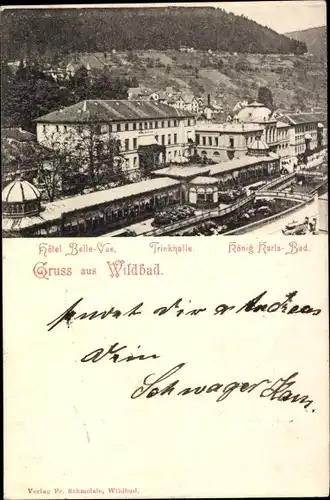 Hôtel Belle-Vue, Trinkhalle. König Karls-Bad.
Gruss aus Wildbad.
sendet dir Andreas
dein
Schwager Hans
Verlag Fr. Schmelzle, Wildbad.